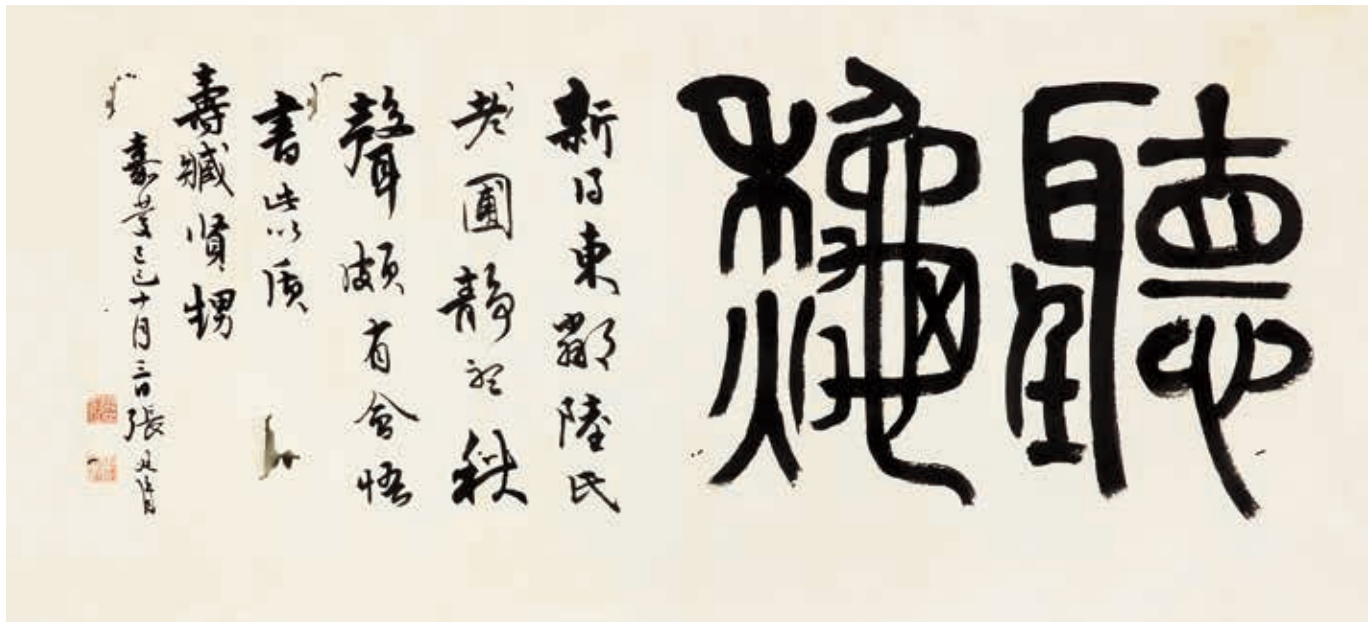 聽𥤛
新得東鄰陸氏
老圃靜聽秋
聲頗有會悟
書此以質
壽臧賢甥
嘉慶己巳十月三日張廷濟